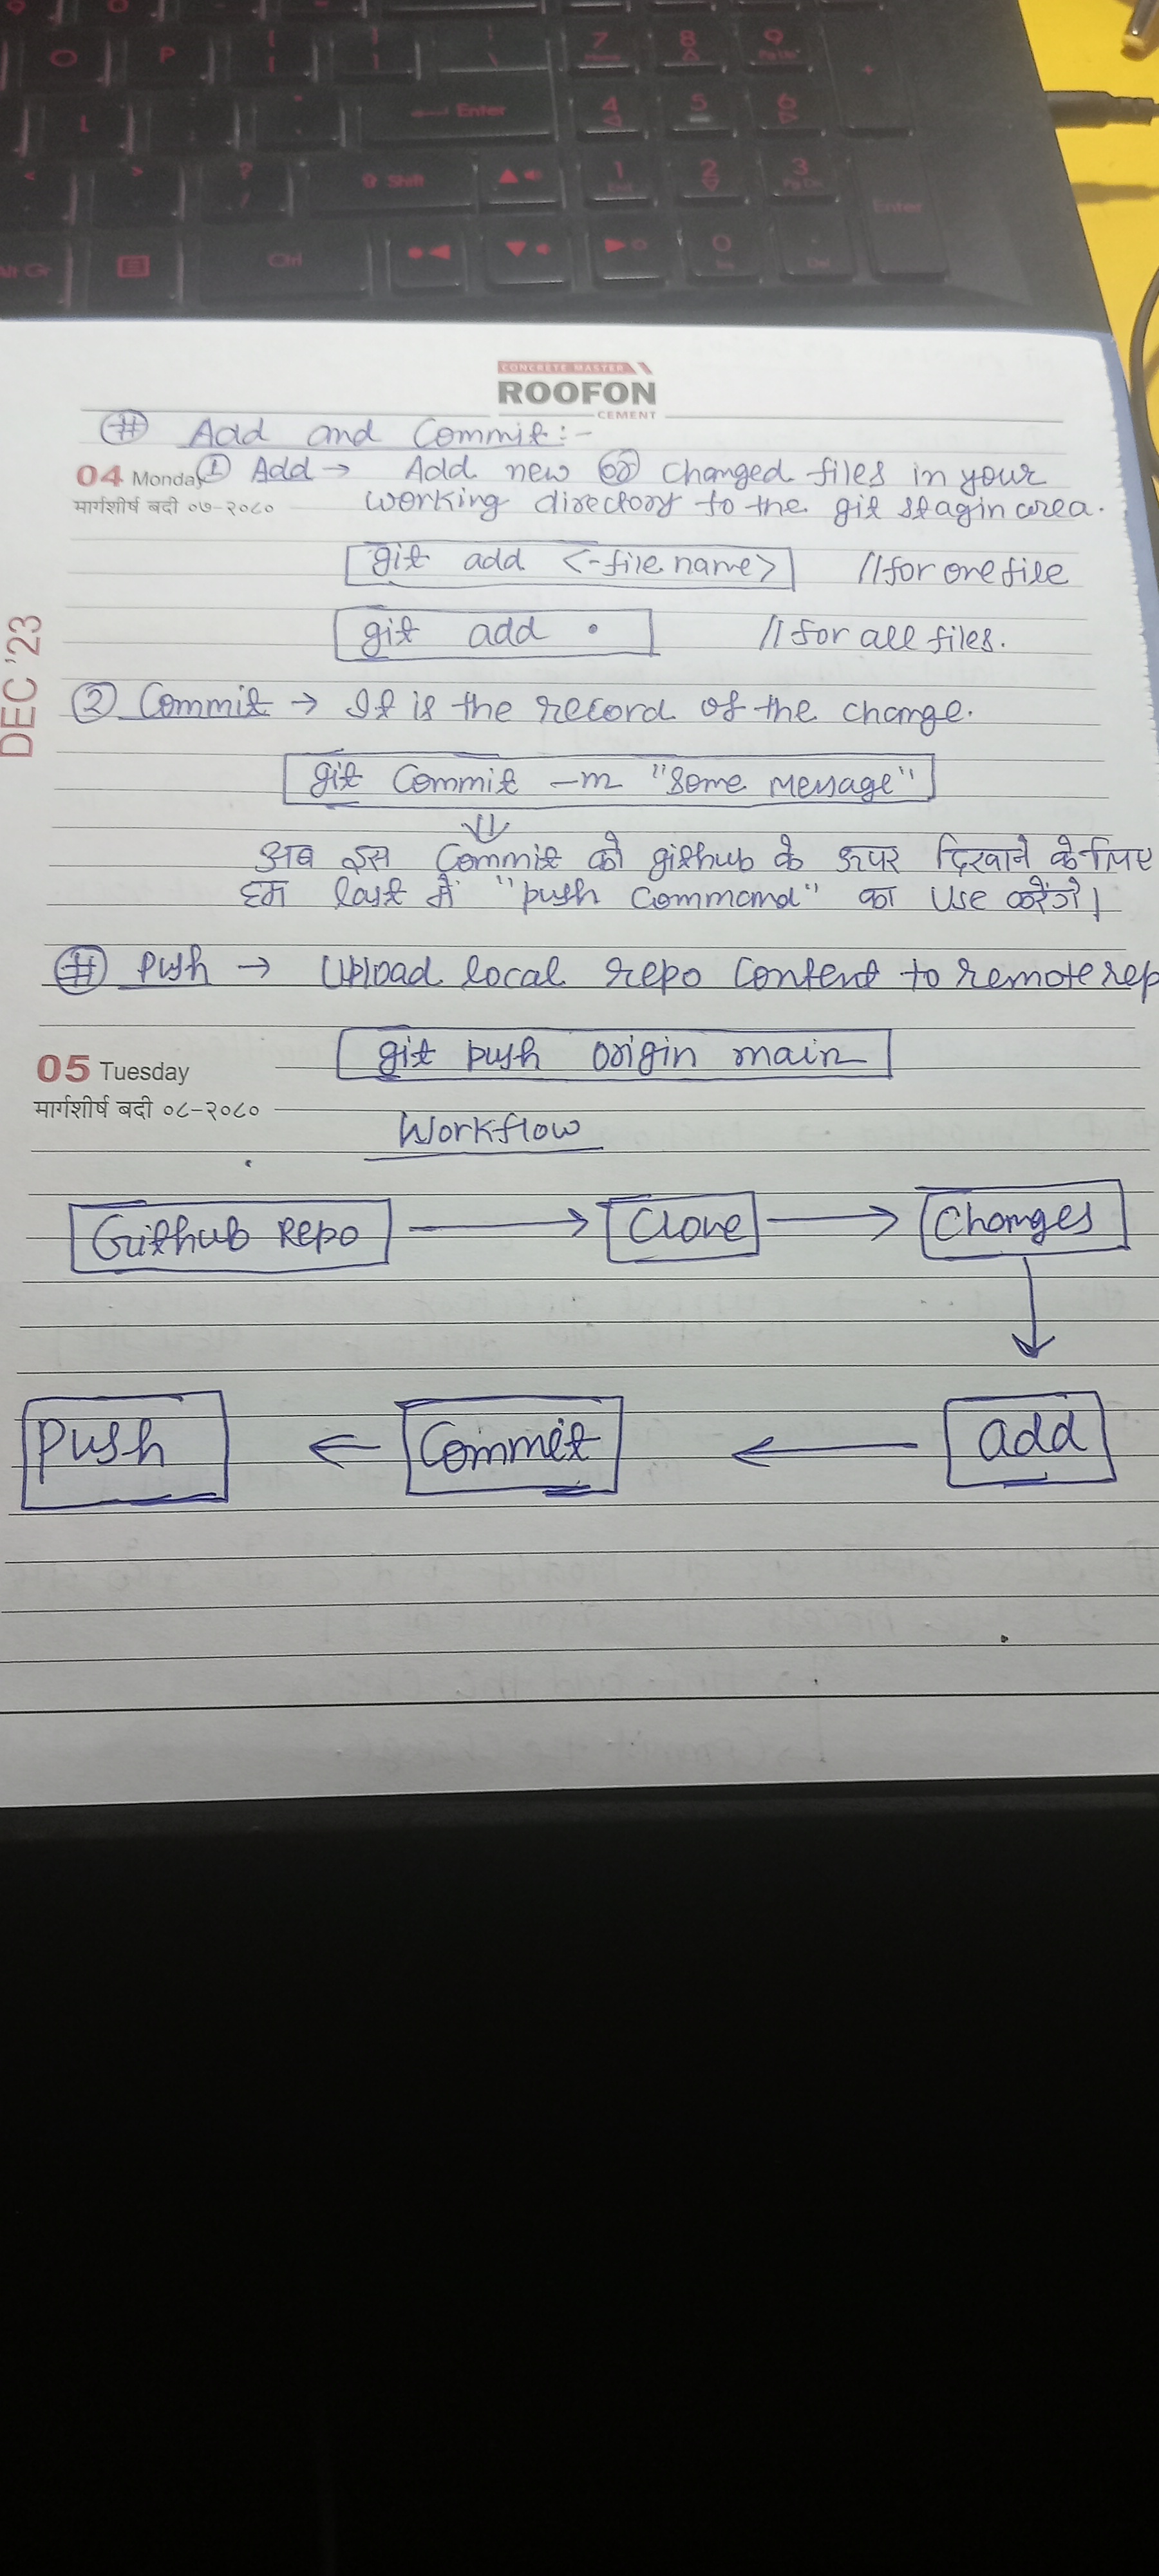 O P { [ } ] | \ 7 Home 8 9 Pg Up +
L Enter 4 5 6
< > ? / Shift 1 End 2 3 Pg Dn Enter
Alt Gr Ctrl 0 Ins . Del
CONCRETE MASTER
ROOFON
CEMENT
# Add and Commit:-
04 Monday ① Add → Add new or changed files in your
मार्गशीर्ष बदी ०७-२०८० working directory to the git stagin area.
git add <-file name> //for one file
git add . // for all files.
DEC '23
② Commit → It is the record of the change.
git Commit -m "Some message"
अब इस Commit को github के ऊपर दिखाने के लिए
हम last में "push Command" का use करेंगे।
# Push → Upload local repo Content to remote rep
git push origin main
05 Tuesday
मार्गशीर्ष बदी ०८-२०८०
Workflow
Github Repo → Clone → Changes
Push ← Commit ← add